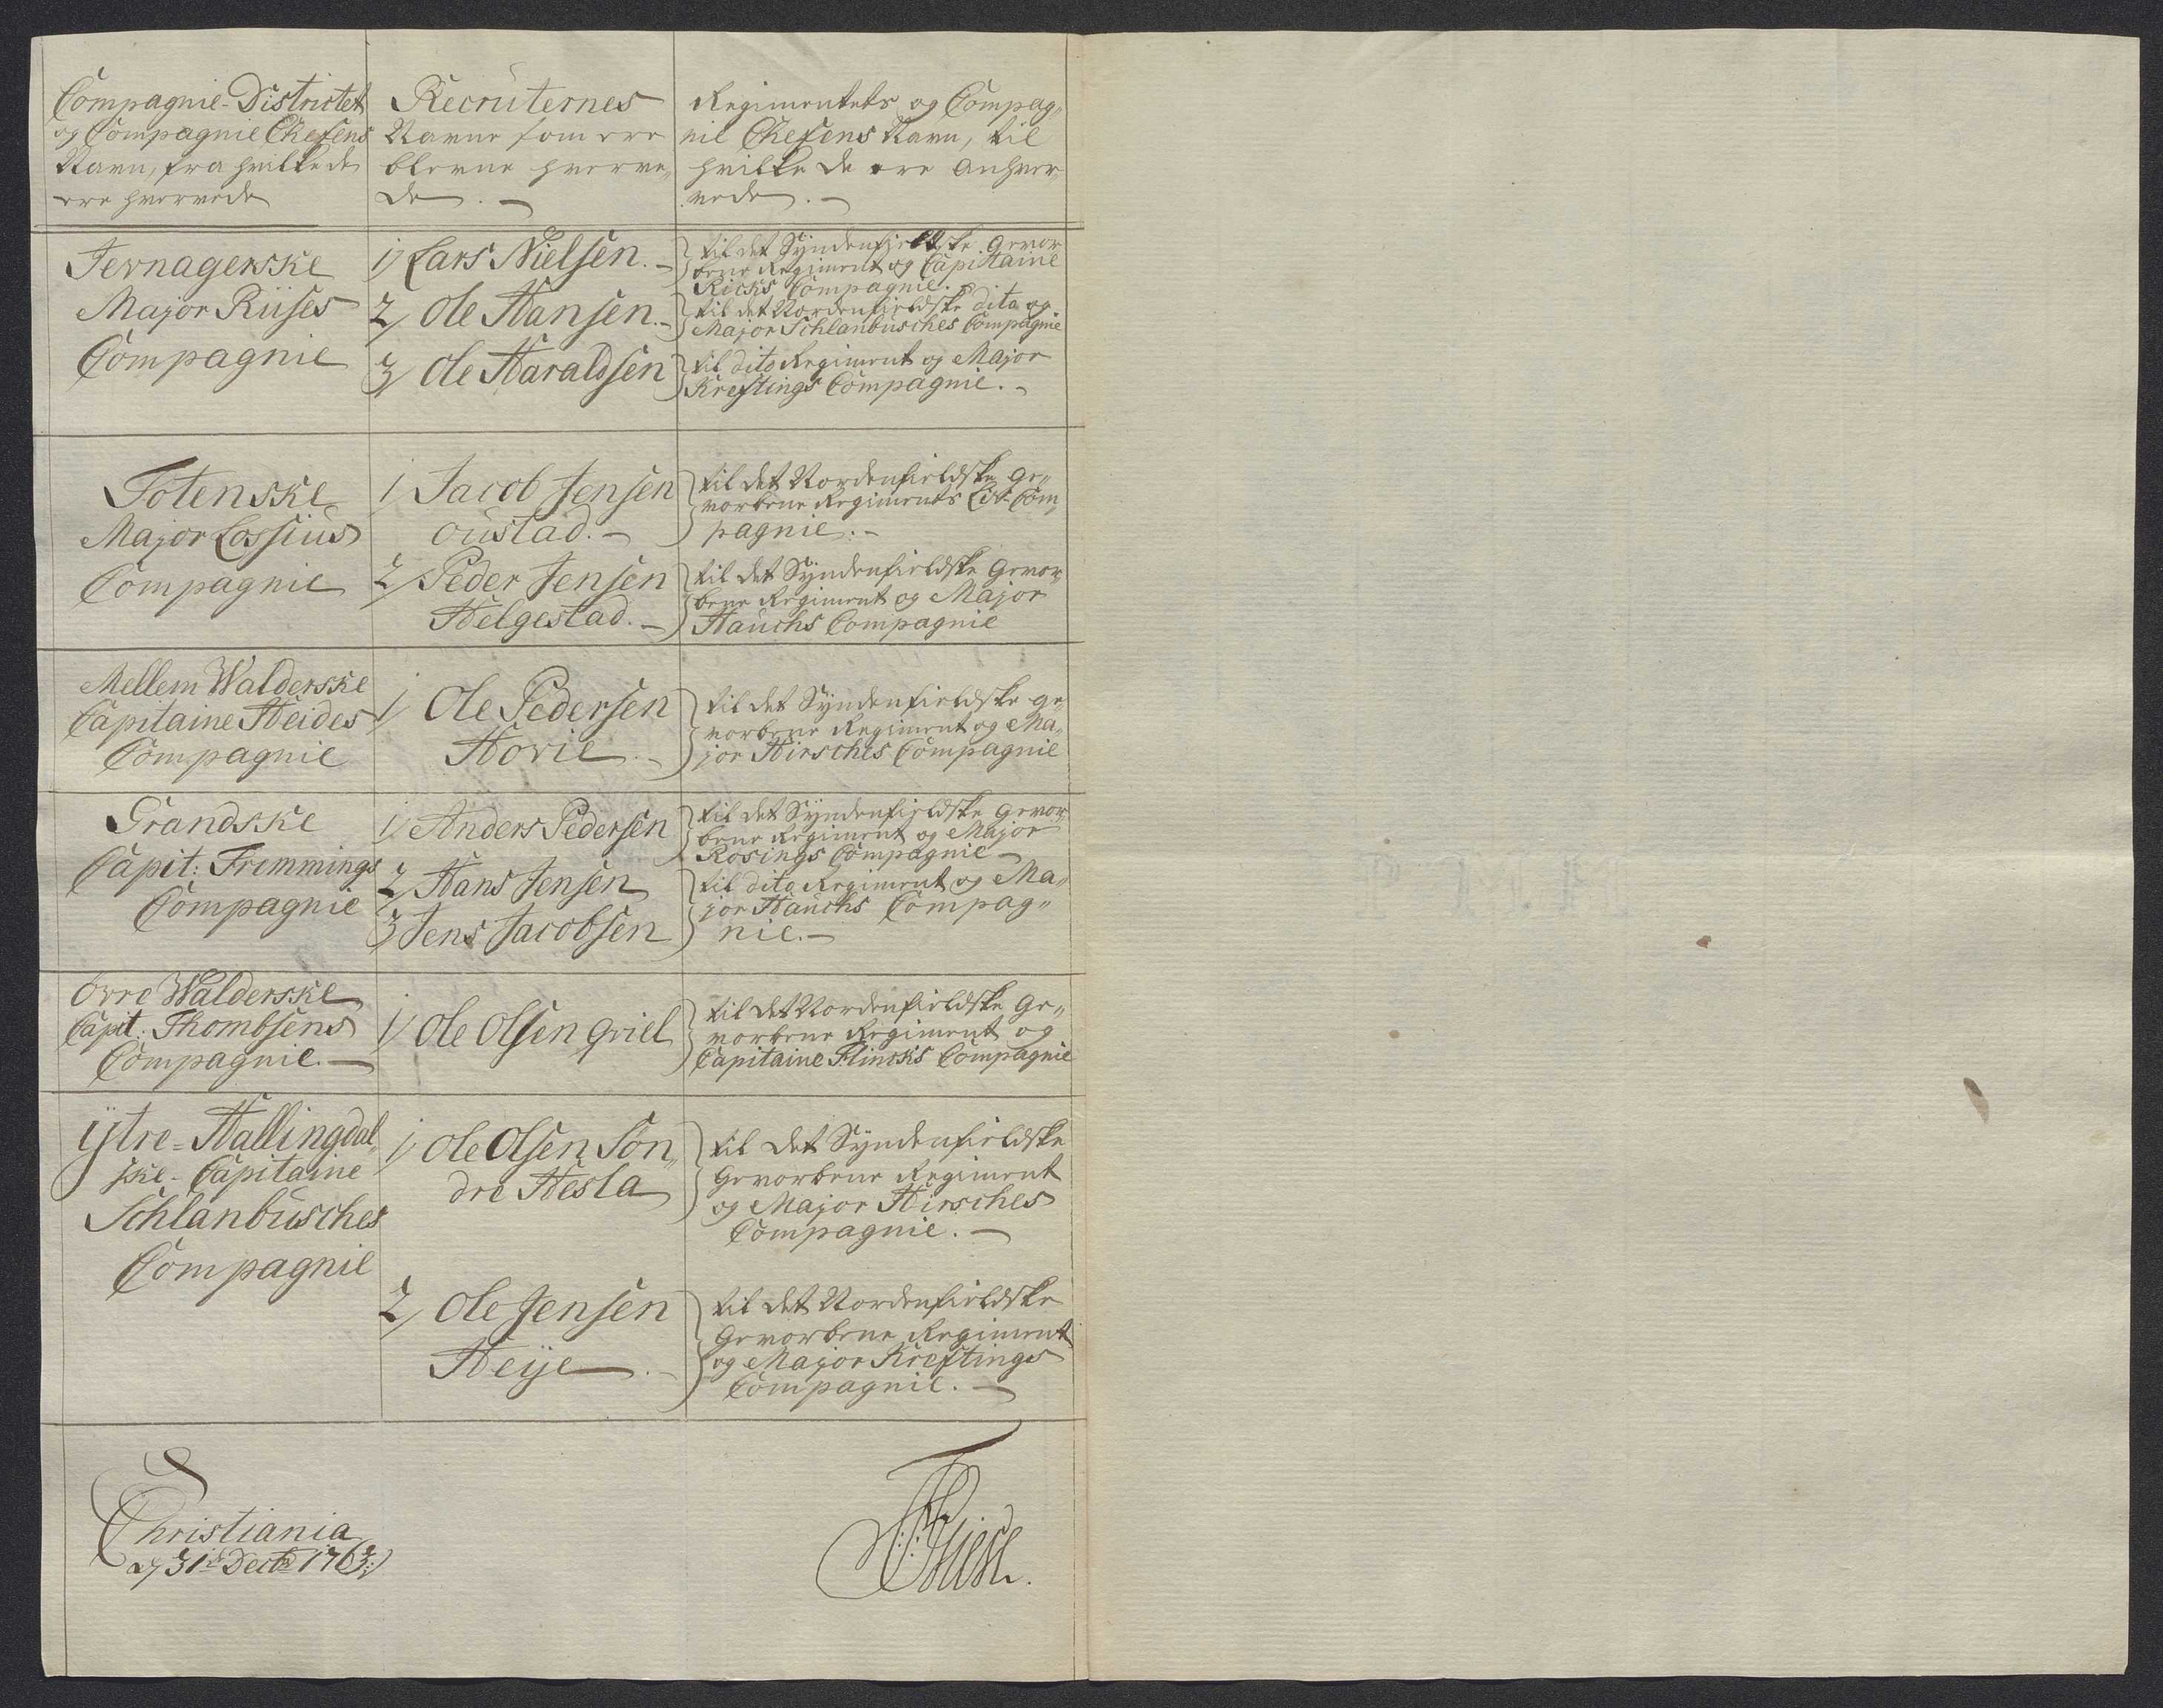 Compagnie-Districtet
og Compagnie Chefens
Navn, fra hvilke de
ere hvervede
Recruternes
Navne som ere
blevne hverve„
de. -
Regimentets og Compag„
nie Chefens Navn, til
hvilke de ere anhver„
vede. -
Jevnagerske
Major Riises
Compagnie
1/ Lars Nielsen. -
2/ Ole Hansen. -
3/ Ole Haraldsen
til det Syndenfieldske Gevor„
bene Regiment og Capitaine
Ricks Compagnie.
til det Nordenfieldske dito og
Major Schlanbusches Compagnie
til dito Regiment og Major
Kreftings Compagnie. -
Totenske
Major Lossius
Compagnie
1/ Jacob Jensen
oustad. -
2/ Peder Jensen
Helgestad. -
til det Nordenfieldske Ge„
vorbene Regiments Liv-Com„
pagnie. -
til det Syndenfieldske Gevor„
bene Regiment og Major
Hauchs Compagnie
Mellem Walderske
Capitaine Heides
Compagnie
1/ Ole Pedersen
Hovie. -
til det Syndenfieldske ge„
vorbene Regiment og Ma„
jor Hirsches Compagnie
Grandske
Capit: Fremmings
Compagnie
1/ Anders Pedersen
2/ Hans Jensen
3/ Jens Jacobsen
til det Syndenfieldske Gevor„
bene Regiment og Major
Rosings Compagnie -
til dito Regiment og Ma„
jor Hauchs Compag„
nie. -
Øvre Walderske
Capit. Thombsens
Compagnie. -
1/ Ole Olsen Qviel
til det Nordenfieldske Ge„
vorbene Regiment og
Capitaine Flincks Compagnie
Ÿtre-Hallingdal„
ske-Capitaine
Schlanbusches
Compagnie
1/ Ole Olsen Søn„
dre Hesla
2/ Ole Jensen
Heije. -
til det Syndenfieldske
Gevorbene Regiment
og Major Hirsches
Compagnie. -
til det Nordenfieldske
Gevorbene Regiment
og Major Kreftings
Compagnie. -
Christiania
31te Decbr